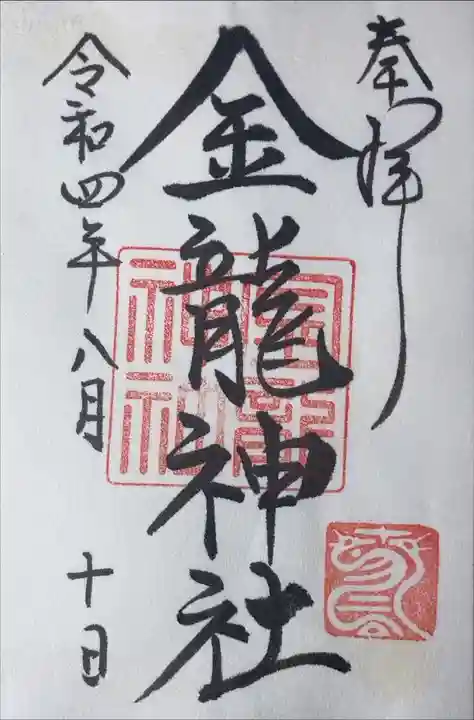 奉拝
金龍神社
令和四年八月十日
金龍
神社